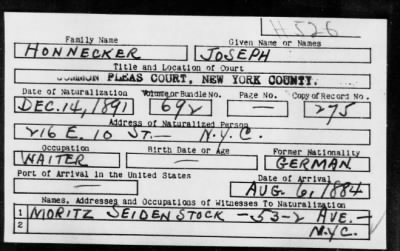 H 526
Family Name Given Name or Names
HONNECKER JOSEPH
Title and Location of Court
COMMON PLEAS COURT, NEW YORK COUNTY.
Date of Naturalization Volume or Bundle No. Page No. Copy of Record No.
DEC. 14, 1891 692 — 275
Address of Naturalized Person
216 E. 10 ST. — N.Y.C.
Occupation Birth Date or Age Former Nationality
WAITER — GERMAN
Port of Arrival in the United States Date of Arrival
— AUG. 6, 1884
Names, Addresses and Occupations of Witnesses To Naturalization
1 MORITZ SEIDENSTOCK — 53-2 AVE. —
2 N.Y.C.